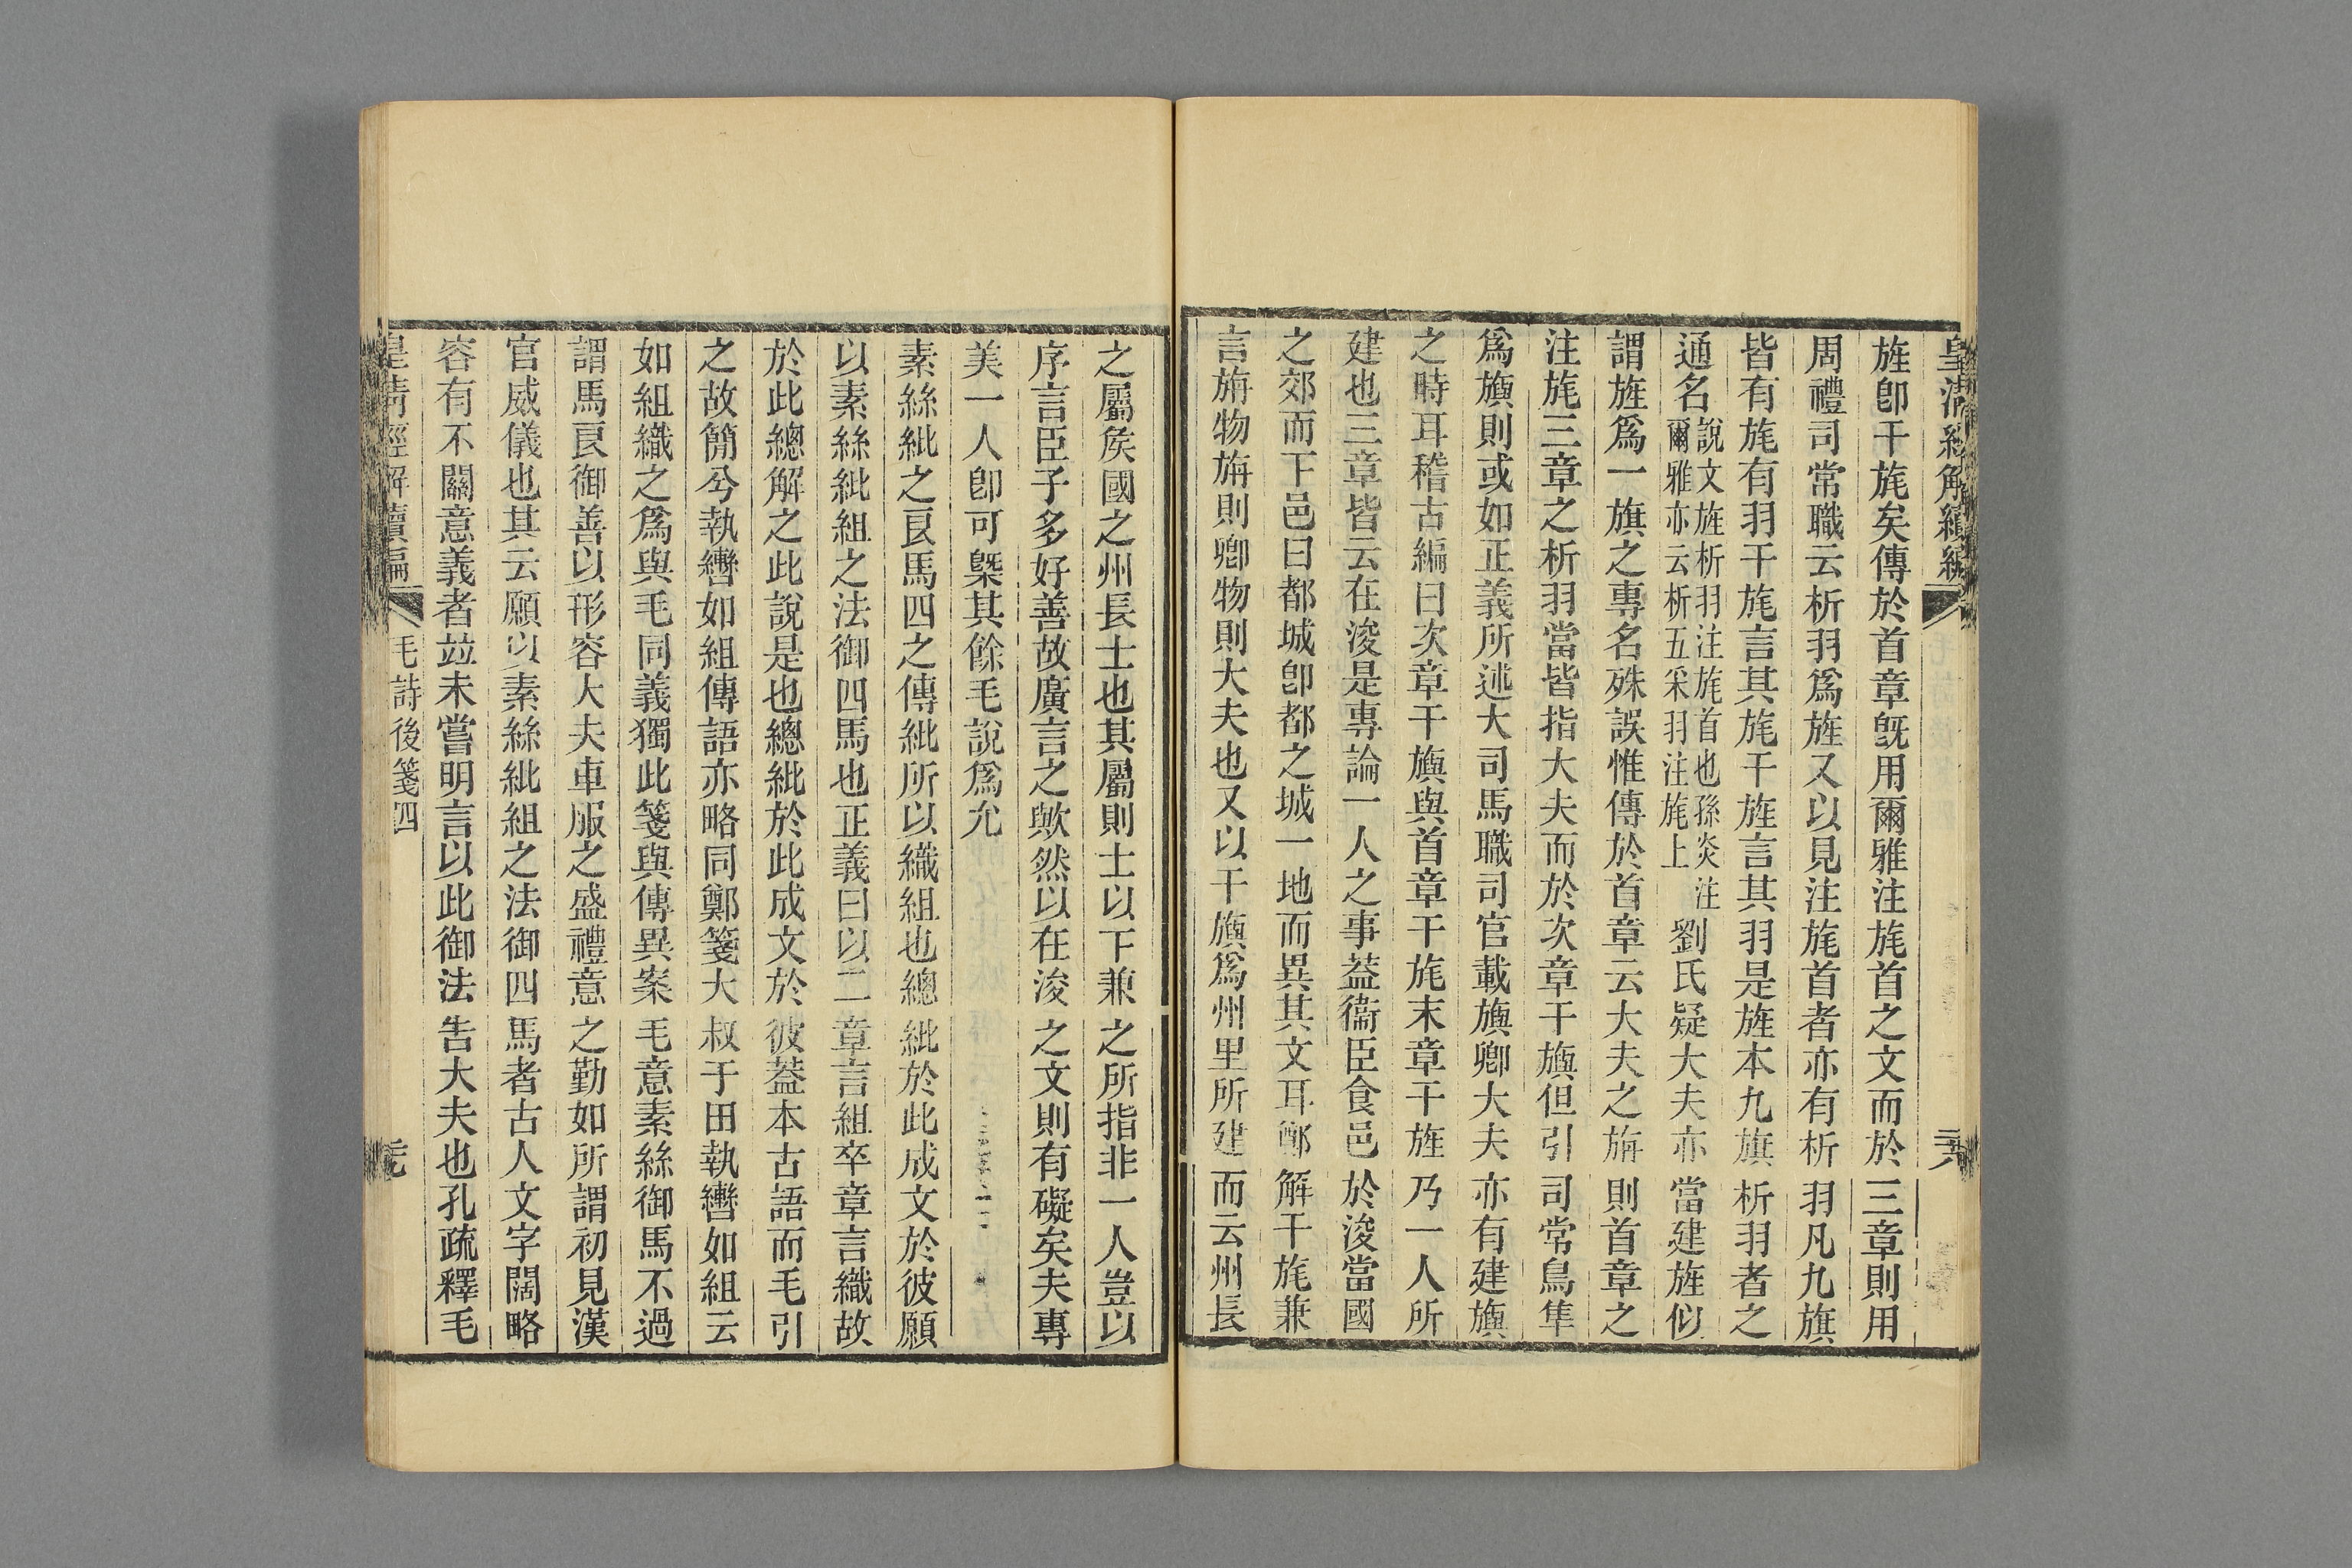 皇清經解續編
旌卽干旄矣傳於首章旣用爾雅注旄首之文而於三章則用
周禮司常職云析羽爲旌又以見注旄首者亦有析羽凡九旗
皆有旄有羽干旄言其旄干旌言其羽是旌本九旗析羽者之
通名說文旌析羽注旄首也孫炎注爾雅亦云析五采羽注旄上劉氏疑大夫亦當建旌似
謂旌爲一旗之專名殊誤惟傳於首章云大夫之旃則首章之
注旄三章之析羽當皆指大夫而於次章干旟但引司常鳥隼
爲旟則或如正義所述大司馬職司官載旟卿大夫亦有建旟
之時耳稽古編曰次章干旟與首章干旄末章干旌乃一人所
建也三章皆云在浚是專論一人之事葢衞臣食邑於浚當國
之郊而下邑曰都城卽都之城一地而異其文耳鄭解干旄兼
言旃物旃則卿物則大夫也又以干旟爲州里所建而云州長
之屬矦國之州長士也其屬則士以下兼之所指非一人豈以
序言臣子多好善故廣言之歟然以在浚之文則有礙矣夫專
美一人卽可槩其餘毛說爲允
素絲紕之良馬四之傳紕所以織組也總紕於此成文於彼願
以素絲紕組之法御四馬也正義曰以二章言組卒章言織故
於此總解之此說是也總紕於此成文於彼葢本古語而毛引
之故簡兮執轡如組傳語亦略同鄭箋大叔于田執轡如組云
如組織之爲與毛同義獨此箋與傳異案毛意素絲御馬不過
謂馬良御善以形容大夫車服之盛禮意之勤如所謂初見漢
官威儀也其云願以素絲紕組之法御四馬者古人文字闊略
容有不關意義者竝未嘗明言以此御法告大夫也孔疏釋毛
皇清經解續編 毛詩後箋四